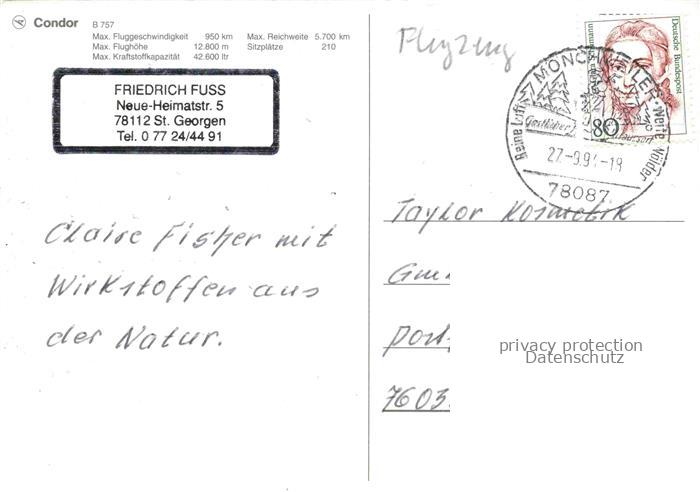 Condor B 757
Max. Fluggeschwindigkeit 950 km Max. Reichweite 5.700 km
Max. Flughöhe 12.800 m Sitzplätze 210
Max. Kraftstoffkapazität 42.600 ltr
Flugzeug
FRIEDRICH FUSS
Neue-Heimatstr. 5
78112 St. Georgen
Tel. 0 77 24/44 91
Deutsche Bundespost
80
MÖNCHWEILER
Reine Luft
Weite Wälder
27.-9.94-18
78087
Claire Fisher mit
Wirkstoffen aus
der Natur.
Taylor Kosmetik
Gm
Post
7603
privacy protection
Datenschutz